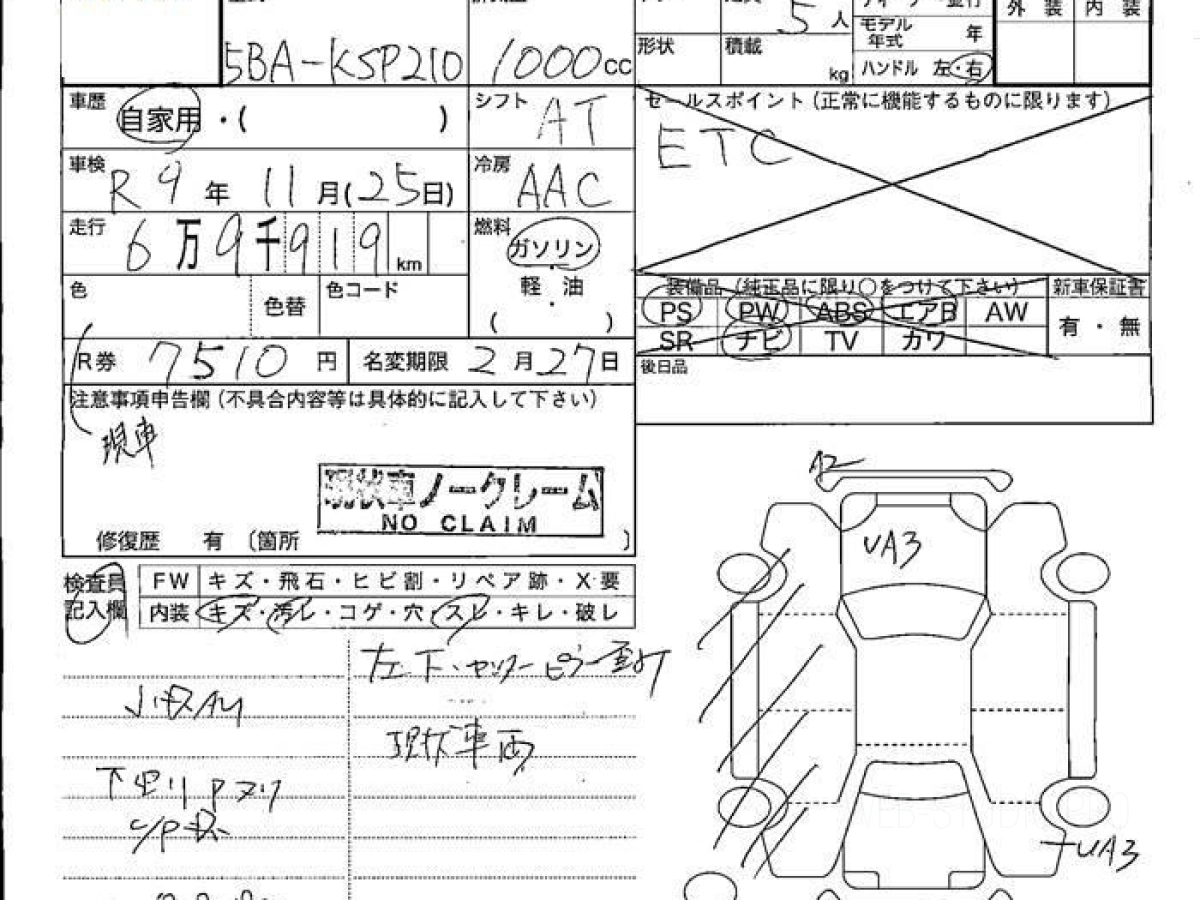 5BA-KSP210
1000cc
5人
形状
積載
kg
モデル
年式
年
ハンドル 左・右
外装 内装
車歴
自家用・( )
シフト
AT
セールスポイント (正常に機能するものに限ります)
ETC
車検
R9年 11月(25日)
冷房
AAC
走行
6万9千919km
燃料
ガソリン
軽・油
・
( )
色
色替
色コード
装備品 (純正品に限り○をつけて下さい)
新車保証書
PS PW ABS エアB AW
SR ナビ TV カワ
有・無
R券 7510円
名変期限 2月27日
後日品
注意事項申告欄 (不具合内容等は具体的に記入して下さい)
現車
現状車ノークレーム
NO CLAIM
修復歴 有 (箇所 )
A2
UA3
検査員
記入欄
FW キズ・飛石・ヒビ割・リペア跡・X要
内装 キズ・汚レ・コゲ・穴・スレ・キレ・破レ
現状車両
UA3